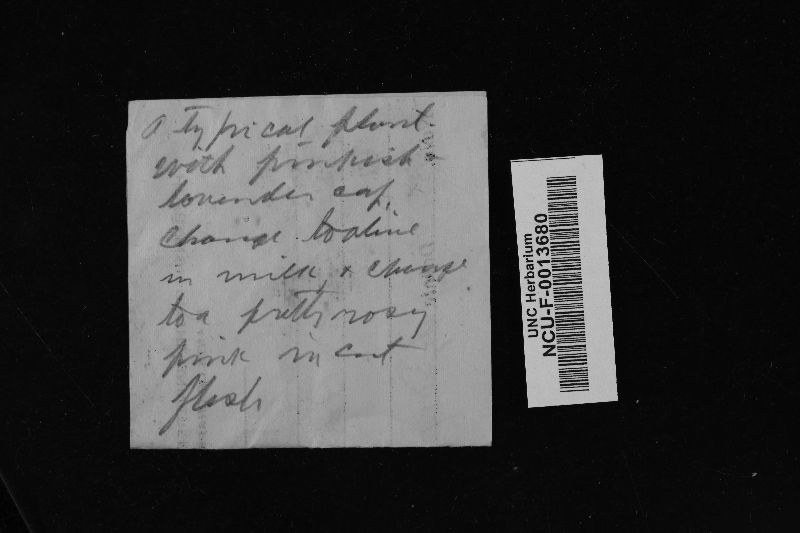 A typical plant
with pinkish-
lavender cap,
change to olive
in milk & change
to a pretty rosy
pink in cut
flesh
UNC Herbarium
NCU-F-0013680